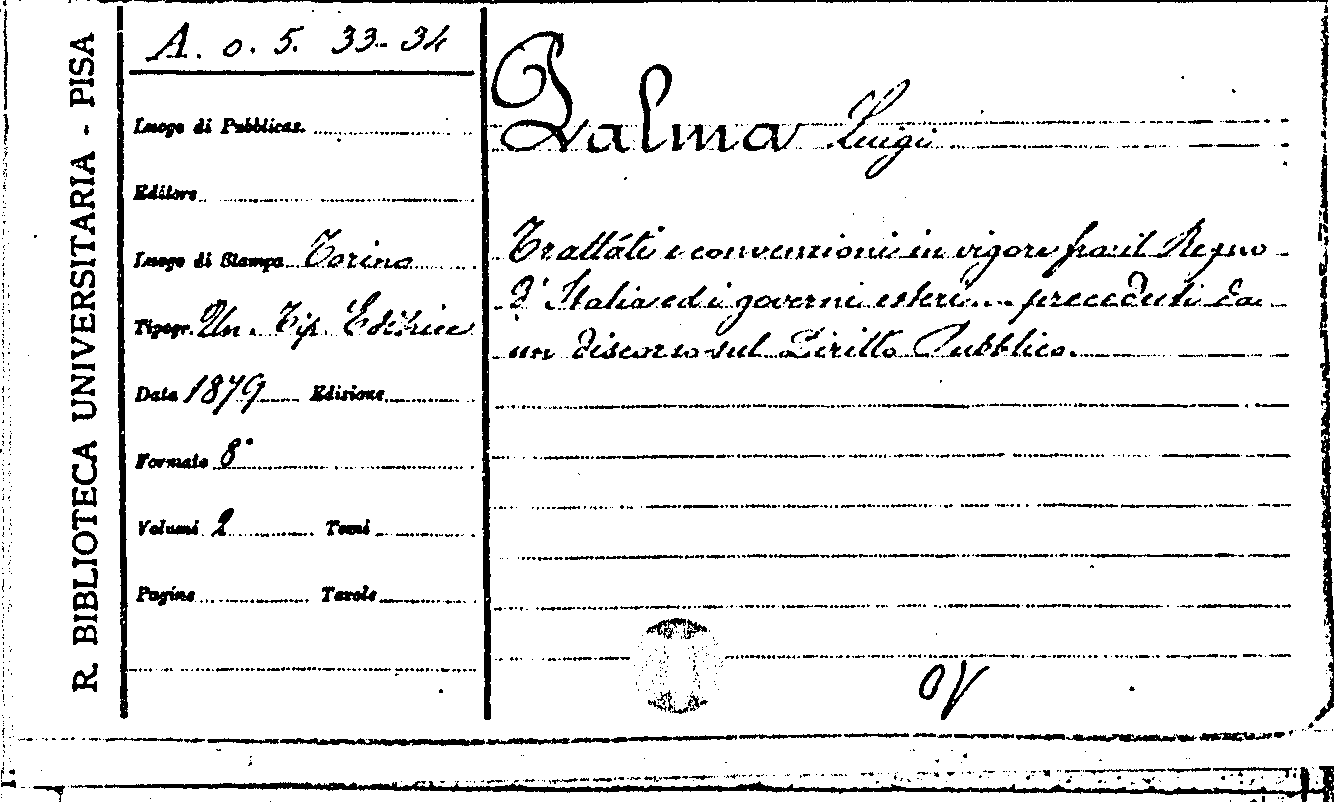 R. BIBLIOTECA UNIVERSITARIA - PISA
A. o. 5. 33-34
Luogo di Pubblicaz.
Editore
Luogo di Stampa Torino
Tipogr. Un. Tip. Editrice
Data 1879 Edizione
Formato 8°
Volumi 2 Tomi
Pagine Tavole
Palma Luigi
Trattati e convenzioni in vigore fra il Regno
d'Italia ed i governi esteri... preceduti da
un discorso sul Diritto Pubblico.